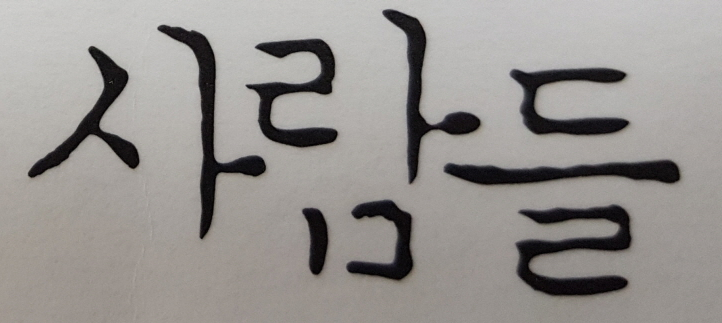 사람들